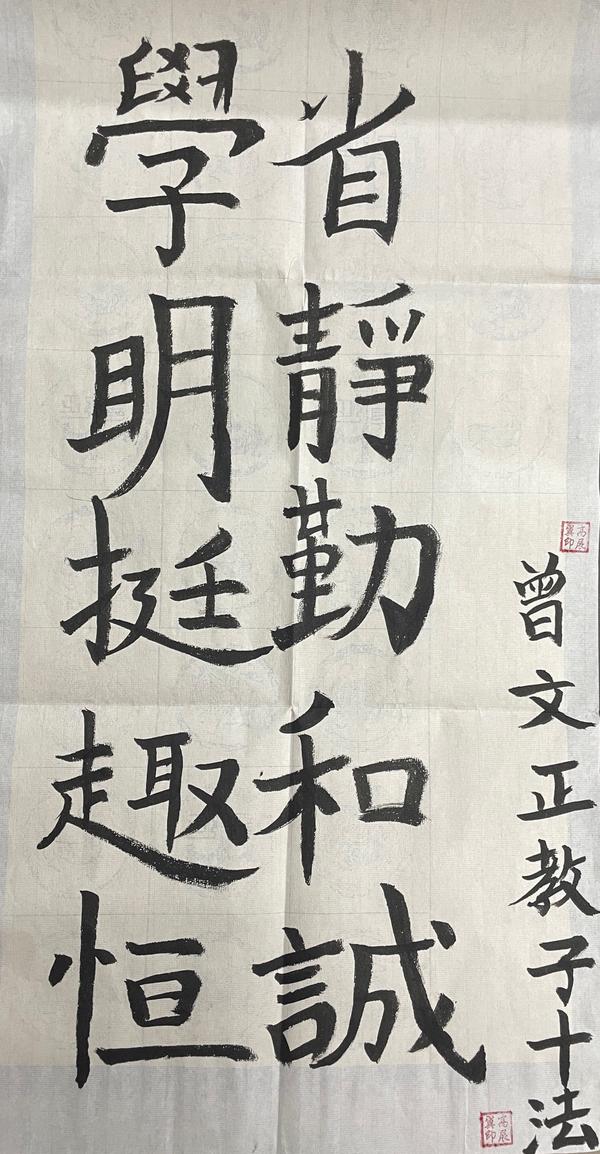 曾文正教子十法
省靜勤和誠
學明挺趣恒